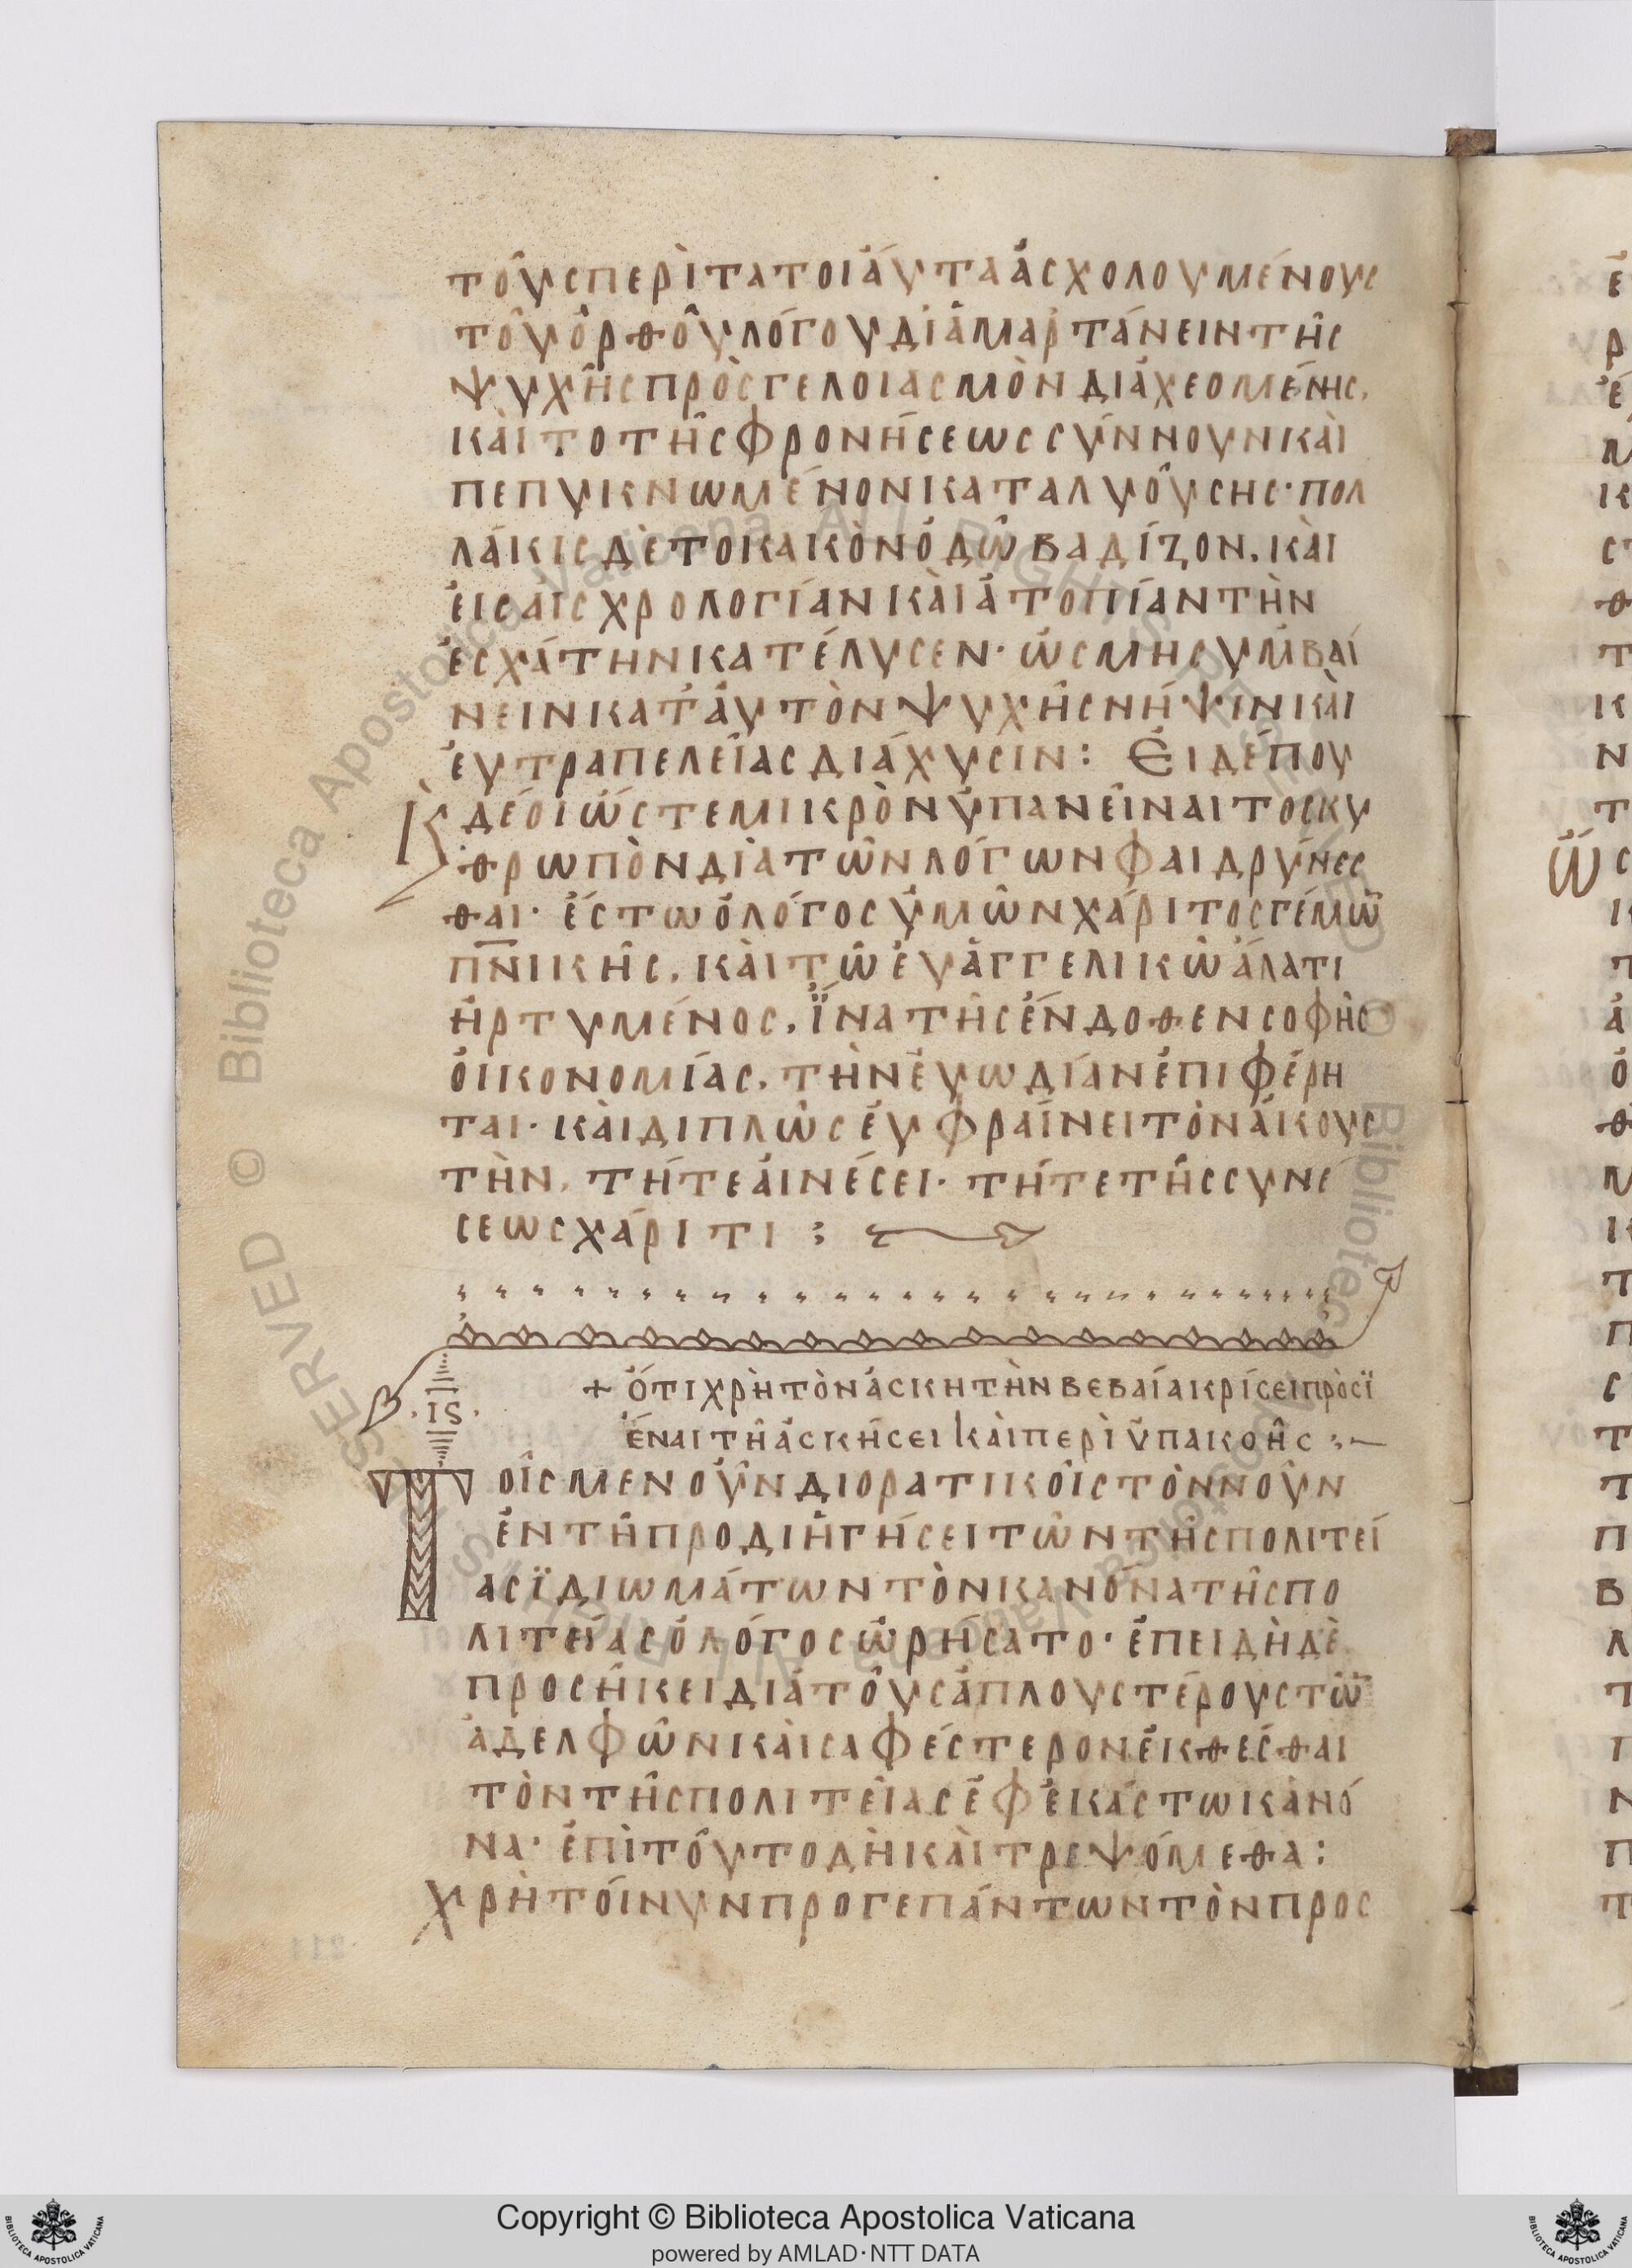 τοῦς περὶ τα τοιάυτα ἀσχολουμένους
τοῦ ὀρθοῦ λόγου διἁμαρτάνειν τῆς
ψυχῆς πρὸς γελοιασμὸν διάχεομένης,
κὰι το τῆς φρονήσεως σύννουν κὰι
πεπυκνωμένον καταλυούσης· πολ
λάκις δὲ το κακὸν ὁδῶ βαδίζον, κὰι
ἐις αἰσχρολογίαν κὰι ἀτοπίαν τὴν
ἐσχάτην κατέλυσεν· ὡς μη συμβαί
νειν κατἀυτὸν ψυχῆς νήψιν κὰι
ἐυτραπελείας διάχυσιν: Ἐι δέ που
δέοι ὥστε μικρὸν ὑπανεῖναι το σκυ
θρωπὸν διὰ τῶν λόγων φαιδρύνεσ
θαι· ἔστω ὁ λόγος ὑμῶν χάριτος γέμω̅
π̅ν̅ικῆς, κὰι τῶ ἐυἀγγελικῶ ἅλατι
ἠρτυμένος, ἵνα τῆς ἔνδοθεν σοφῆς
ὀικονομίας, τὴν ἐυωδίαν ἐπιφέρη
ται· κὰι διπλῶς ἐυφραίνει τὸν ἀκουσ
τὴν, τήτε ἀινέσει· τήτε τῆς συνέ
σεως χάριτι :
+ ὅτι χρὴ τὸν ἀσκητὴν βεβαία κρίσει πρὸσϊ
έναι τῆ ἀσκήσει κὰι περὶ ὑπακοῆς :-
·ις·
Τοῖς μεν οὖν διορατικοῖς τὸν νοῦν
ἐν τῆ προδιἠγήσει τῶν τῆς πολιτεί
ας ϊδιωμάτων τὸν κανόνα τῆς πο
λιτείας ὁ λόγος ὡρήσατο· ἐπειδὴ δὲ
προσήκει διά τοῦς ἁπλουστέρους τῶ̅
ἀδελφῶν κὰι σαφέστερον ἐκθέσθαι
τὸν τῆς πολιτείας ἐφ ἑκάστω κανό
να· ἐπὶ τοῦτο δὴ κὰι τρεψόμεθα:
χρὴ τόινυν προγε πάντων τὸν προσ
Copyright © Biblioteca Apostolica Vaticana
powered by AMLAD·NTT DATA